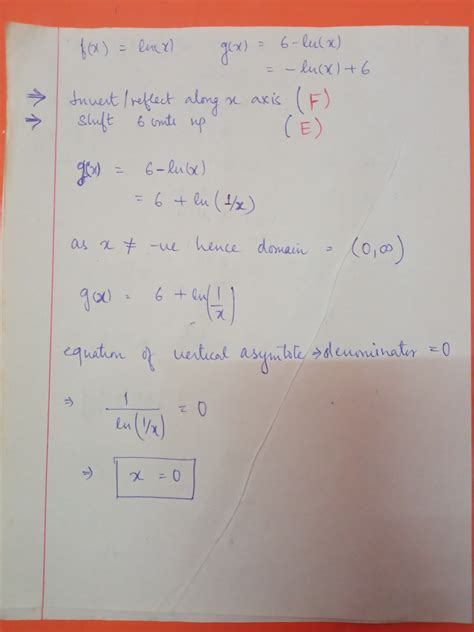 f(x) = ln(x) g(x) = 6-ln(x)
= -ln(x)+6
⇒ Invert/reflect along x axis (F)
⇒ Shift 6 units up (E)
g(x) = 6-ln(x)
= 6 + ln(1/x)
as x ≠ -ve hence domain = (0,∞)
g(x) = 6 + ln(1/x)
equation of vertical asymtote → denominator = 0
⇒ 1/ln(1/x) = 0
⇒ x = 0